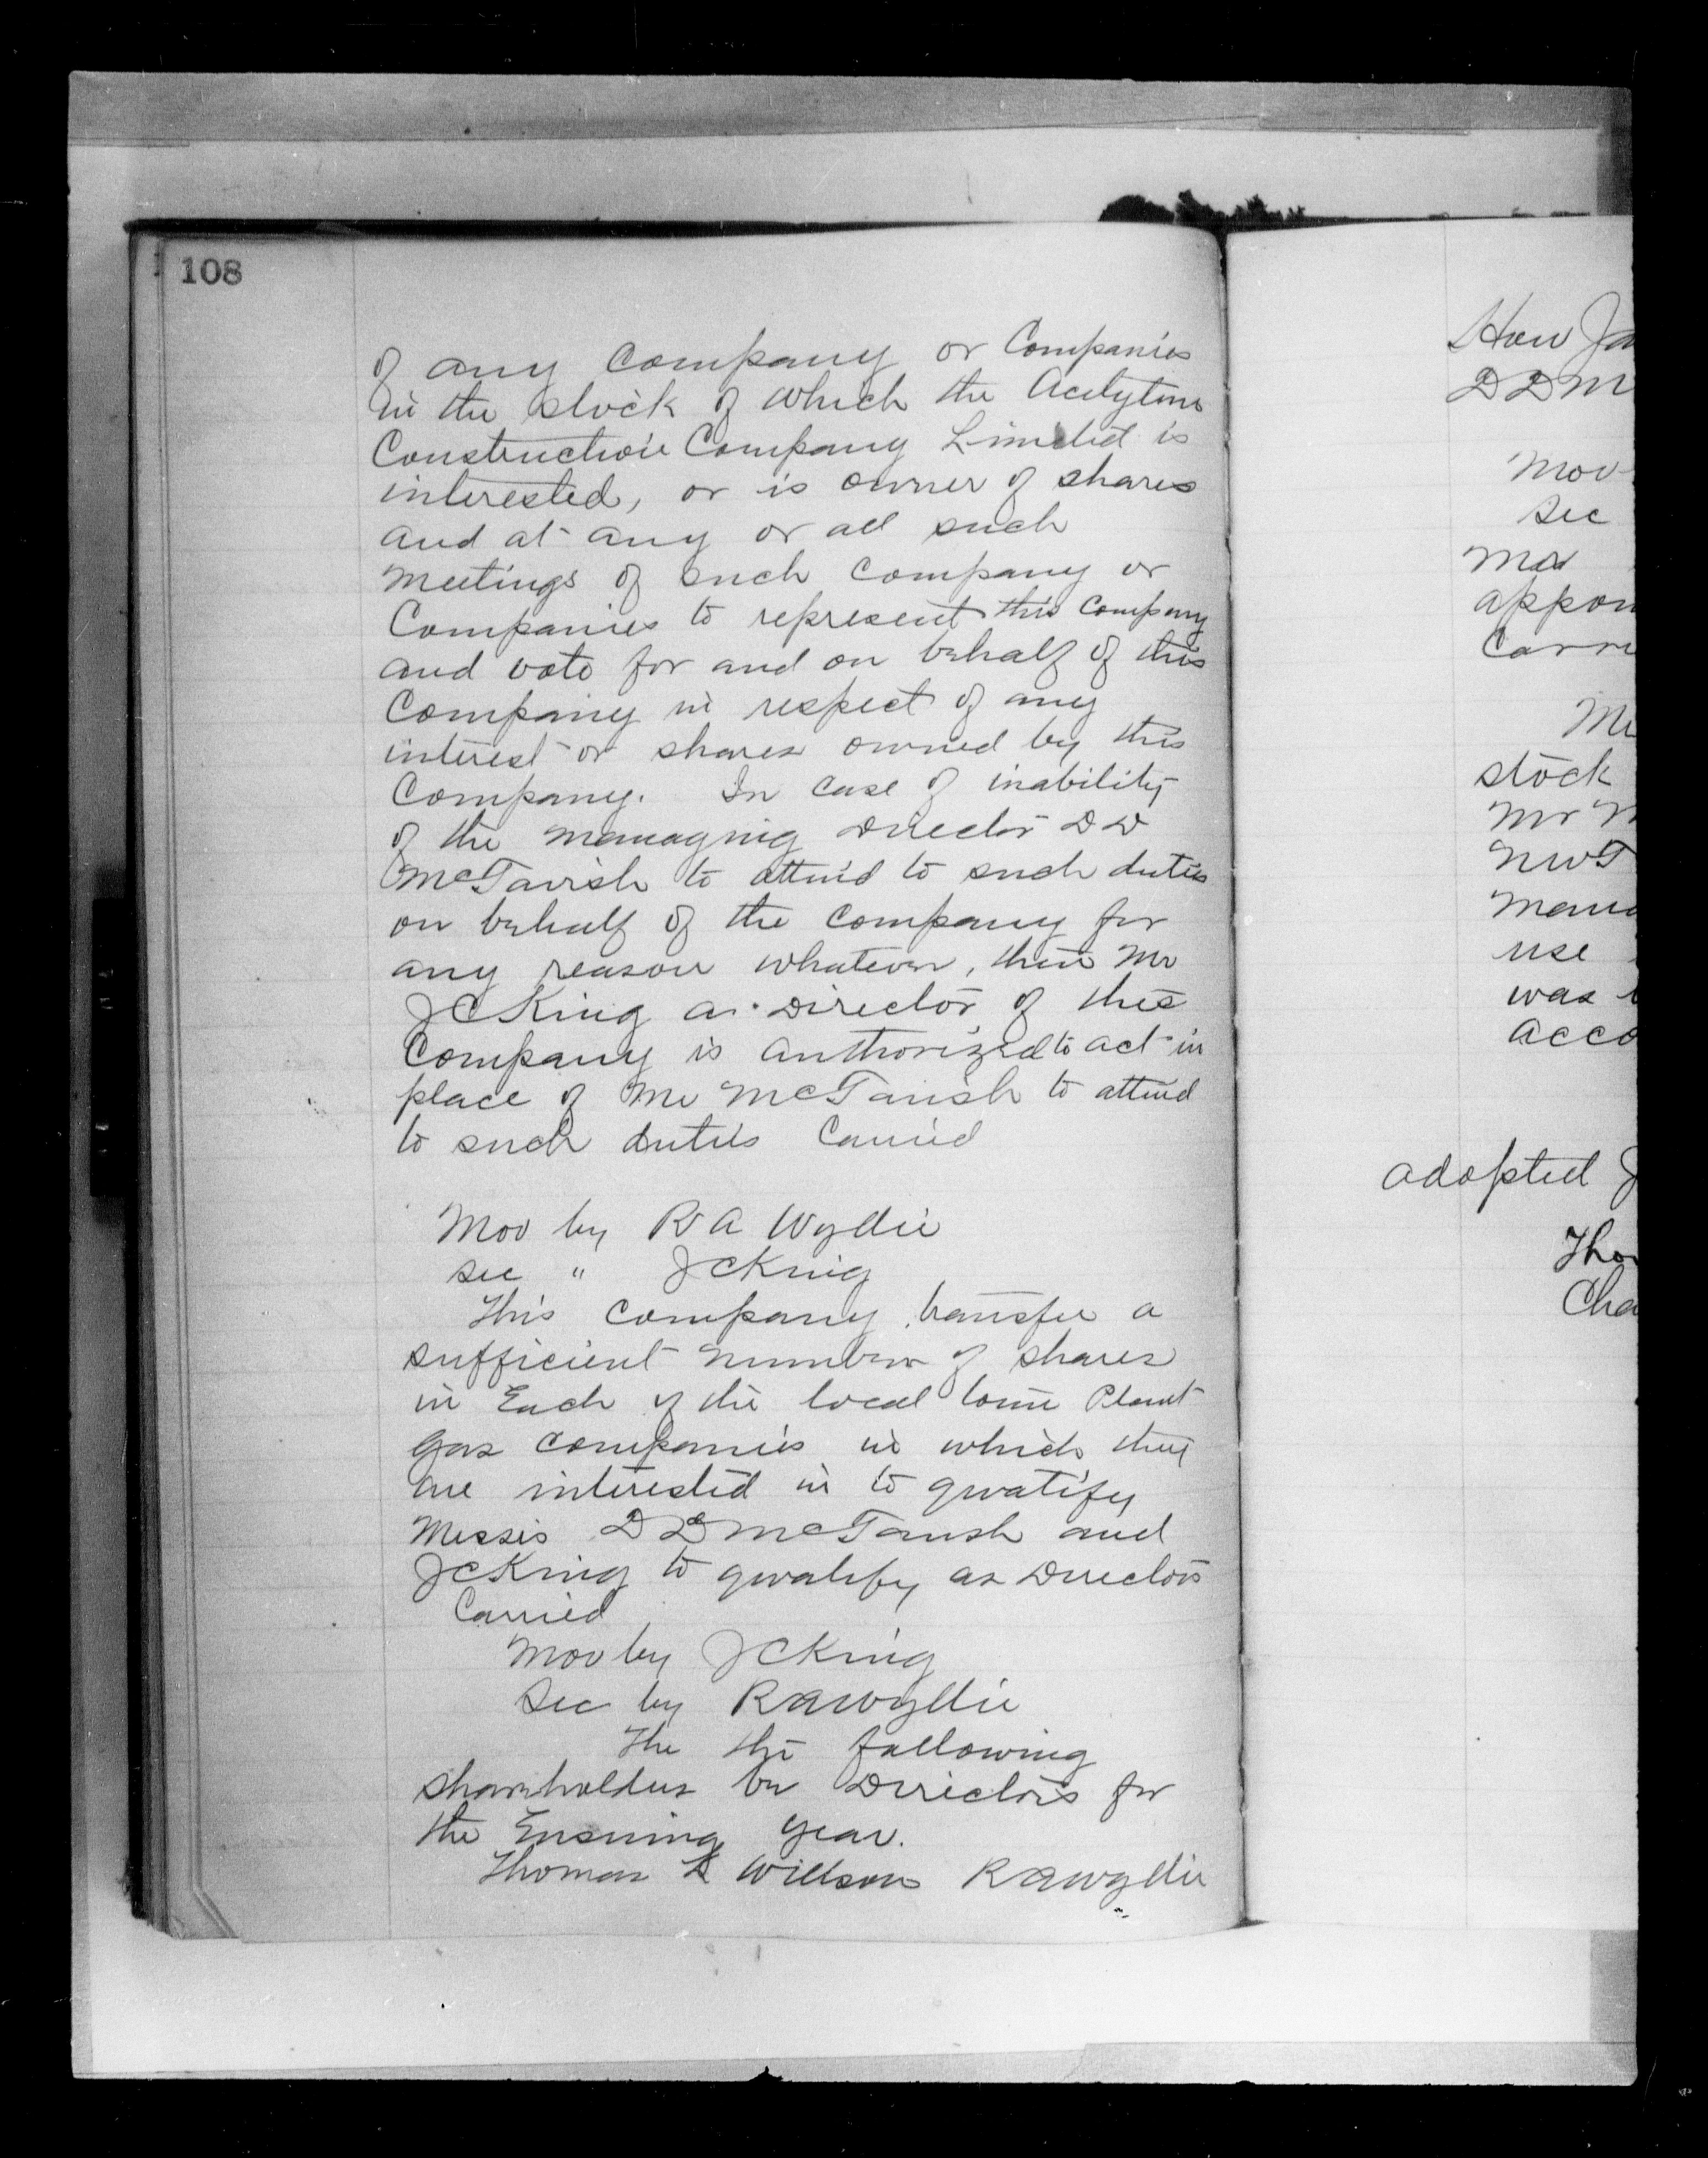 108
of any Company or Companies
in the stock of which the Acetylene
Construction Company Limited is
interested, or is owner of shares
and at any or all such
meetings of such Company or
Companies to represent this Company
and vote for and on behalf of this
Company in respect of any
interest or shares owned by this
Company. In case of inability
of the managing Director D D
McTavish to attend to such duties
on behalf of the Company for
any reason whatever, then Mr
J C King a Director of this
Company is authorized to act in
place of Mr McTavish to attend
to such duties Carried
Mov by R A Wyllie
Sec " J C King
This Company transfer a
sufficient number of shares
in Each of the local town Plant
gas companies in which they
are interested in to qualify
Messrs D D McTavish and
J C King to qualify as Directors
Carried
Mov by J C King
Sec by R A Wyllie
The the following
shareholders be Directors for
the Ensuing year.
Thomas L Willson R A Wyllie
Hon Ja
D D M
Mov
Sec
appon
Carri
Mr
stock
Mr
NWT
mana
use
was
acco
adopted J
Tho
Cha